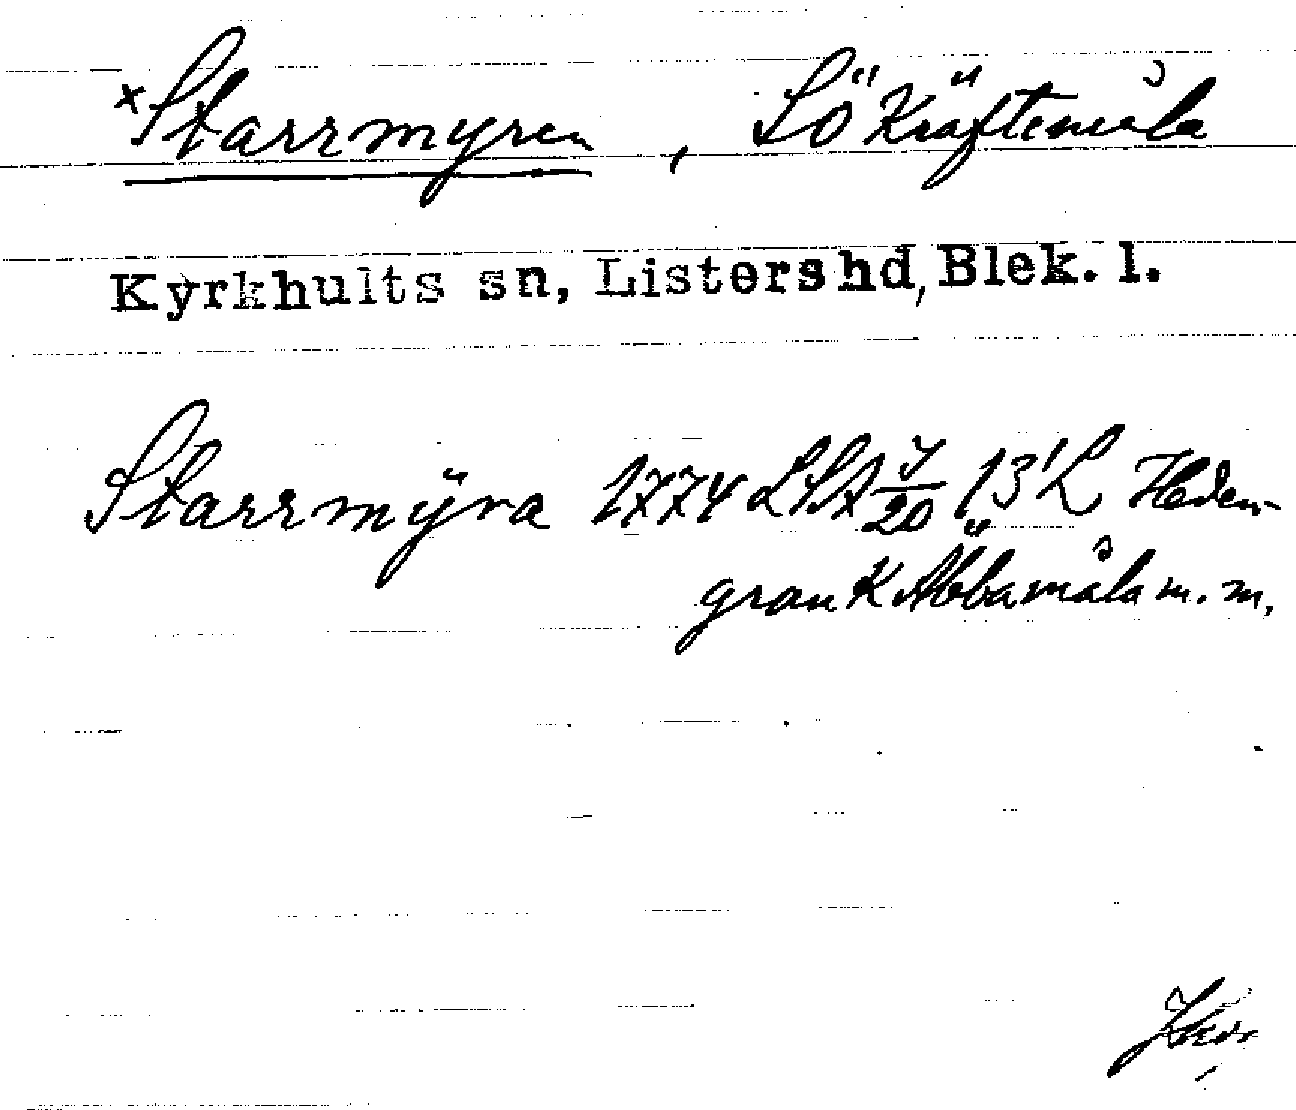 ×Starrmyren, SÖ Kräftemåla
Kyrkhults sn, Listershd, Blek. l.
Starrmÿra 1774 LSA 13'L Heden-
gran K Abbamåla m. m.